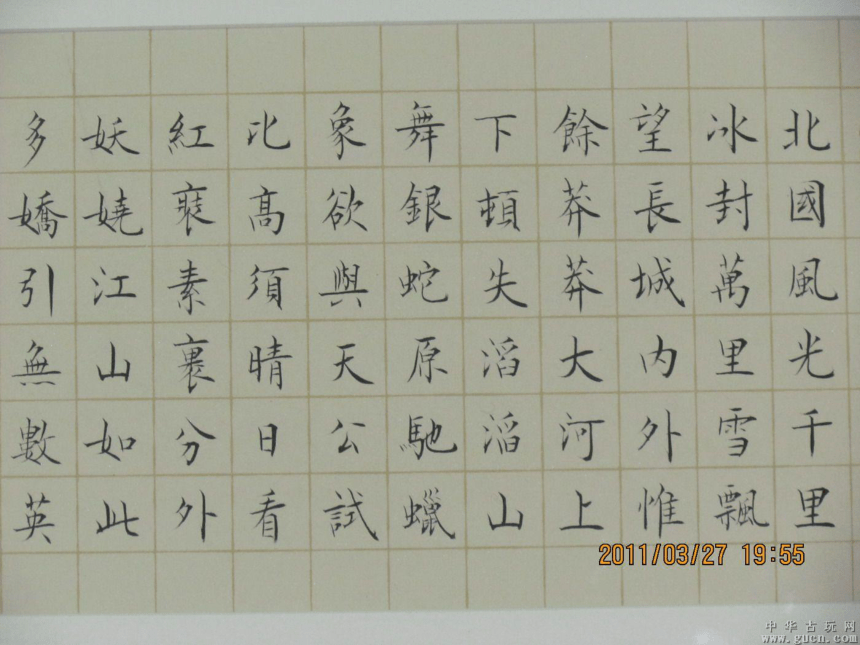 北國風光千里
冰封萬里雪飄
望長城内外惟
餘莽莽大河上
下頓失滔滔山
舞銀蛇原馳蠟
象欲與天公試
比高須晴日看
紅裝素裹分外
妖嬈江山如此
多嬌引無數英
2011/03/27 19:55
中华古玩网
www.gucn.com